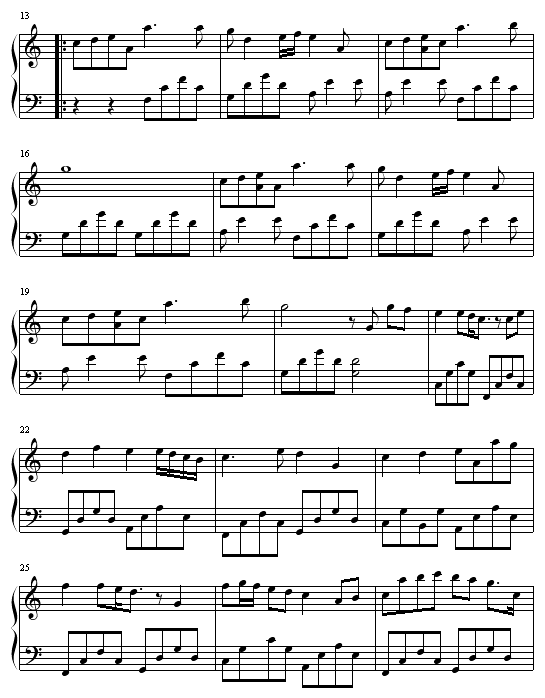 13
16
19
22
25